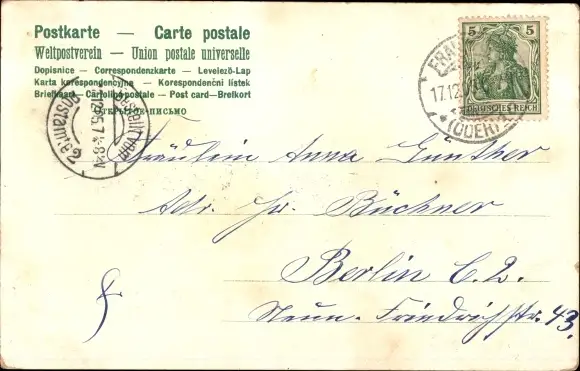 Postkarte — Carte postale
Weltpostverein — Union postale universelle
Dopisnice — Correspondenzkarte — Levelező-Lap
Karta korespondencyjna — Korespondenční lístek
Briefkaart — Cartolina postale — Post card — Brefkort
ОТКРЫТОЕ ПИСЬМО
5 5
DEUTSCHES REICH
FRA
17.12
(ODER)
Fräulein Anna Günther
Adr. Hr. Büchner
Berlin C. 2.
Neue Friedrichstr. 43.